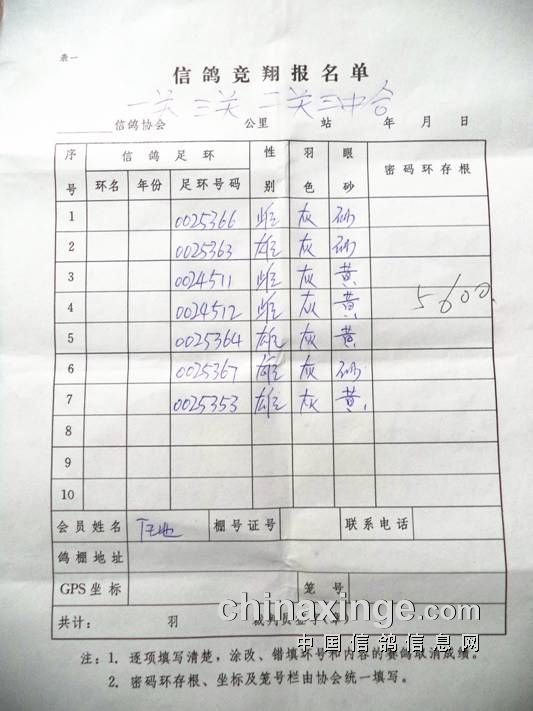 表一
信鸽竞翔报名单
一关 三关 二关 三中合
信鸽协会 公里 站 年 月 日
序号 信鸽足环 性别 羽色 眼砂 密码环存根
环名 年份 足环号码
1 0025366 雌 灰 砂
2 0025363 雄 灰 砂
3 0024511 雌 灰 黄
4 0024512 雌 灰 黄 5600
5 0025364 雄 灰 黄
6 0025367 雄 灰 砂
7 0025353 雄 灰 黄
8
9
10
会员姓名 棚号证号 联系电话
鸽棚地址
GPS坐标 笼号
共计: 羽 裁判员签字(章)
chinaxinge.com
中国信鸽信息网
注:1. 逐项填写清楚,涂改、错填环号和内容的赛鸽取消成绩。
2. 密码环存根、坐标及笼号栏由协会统一填写。